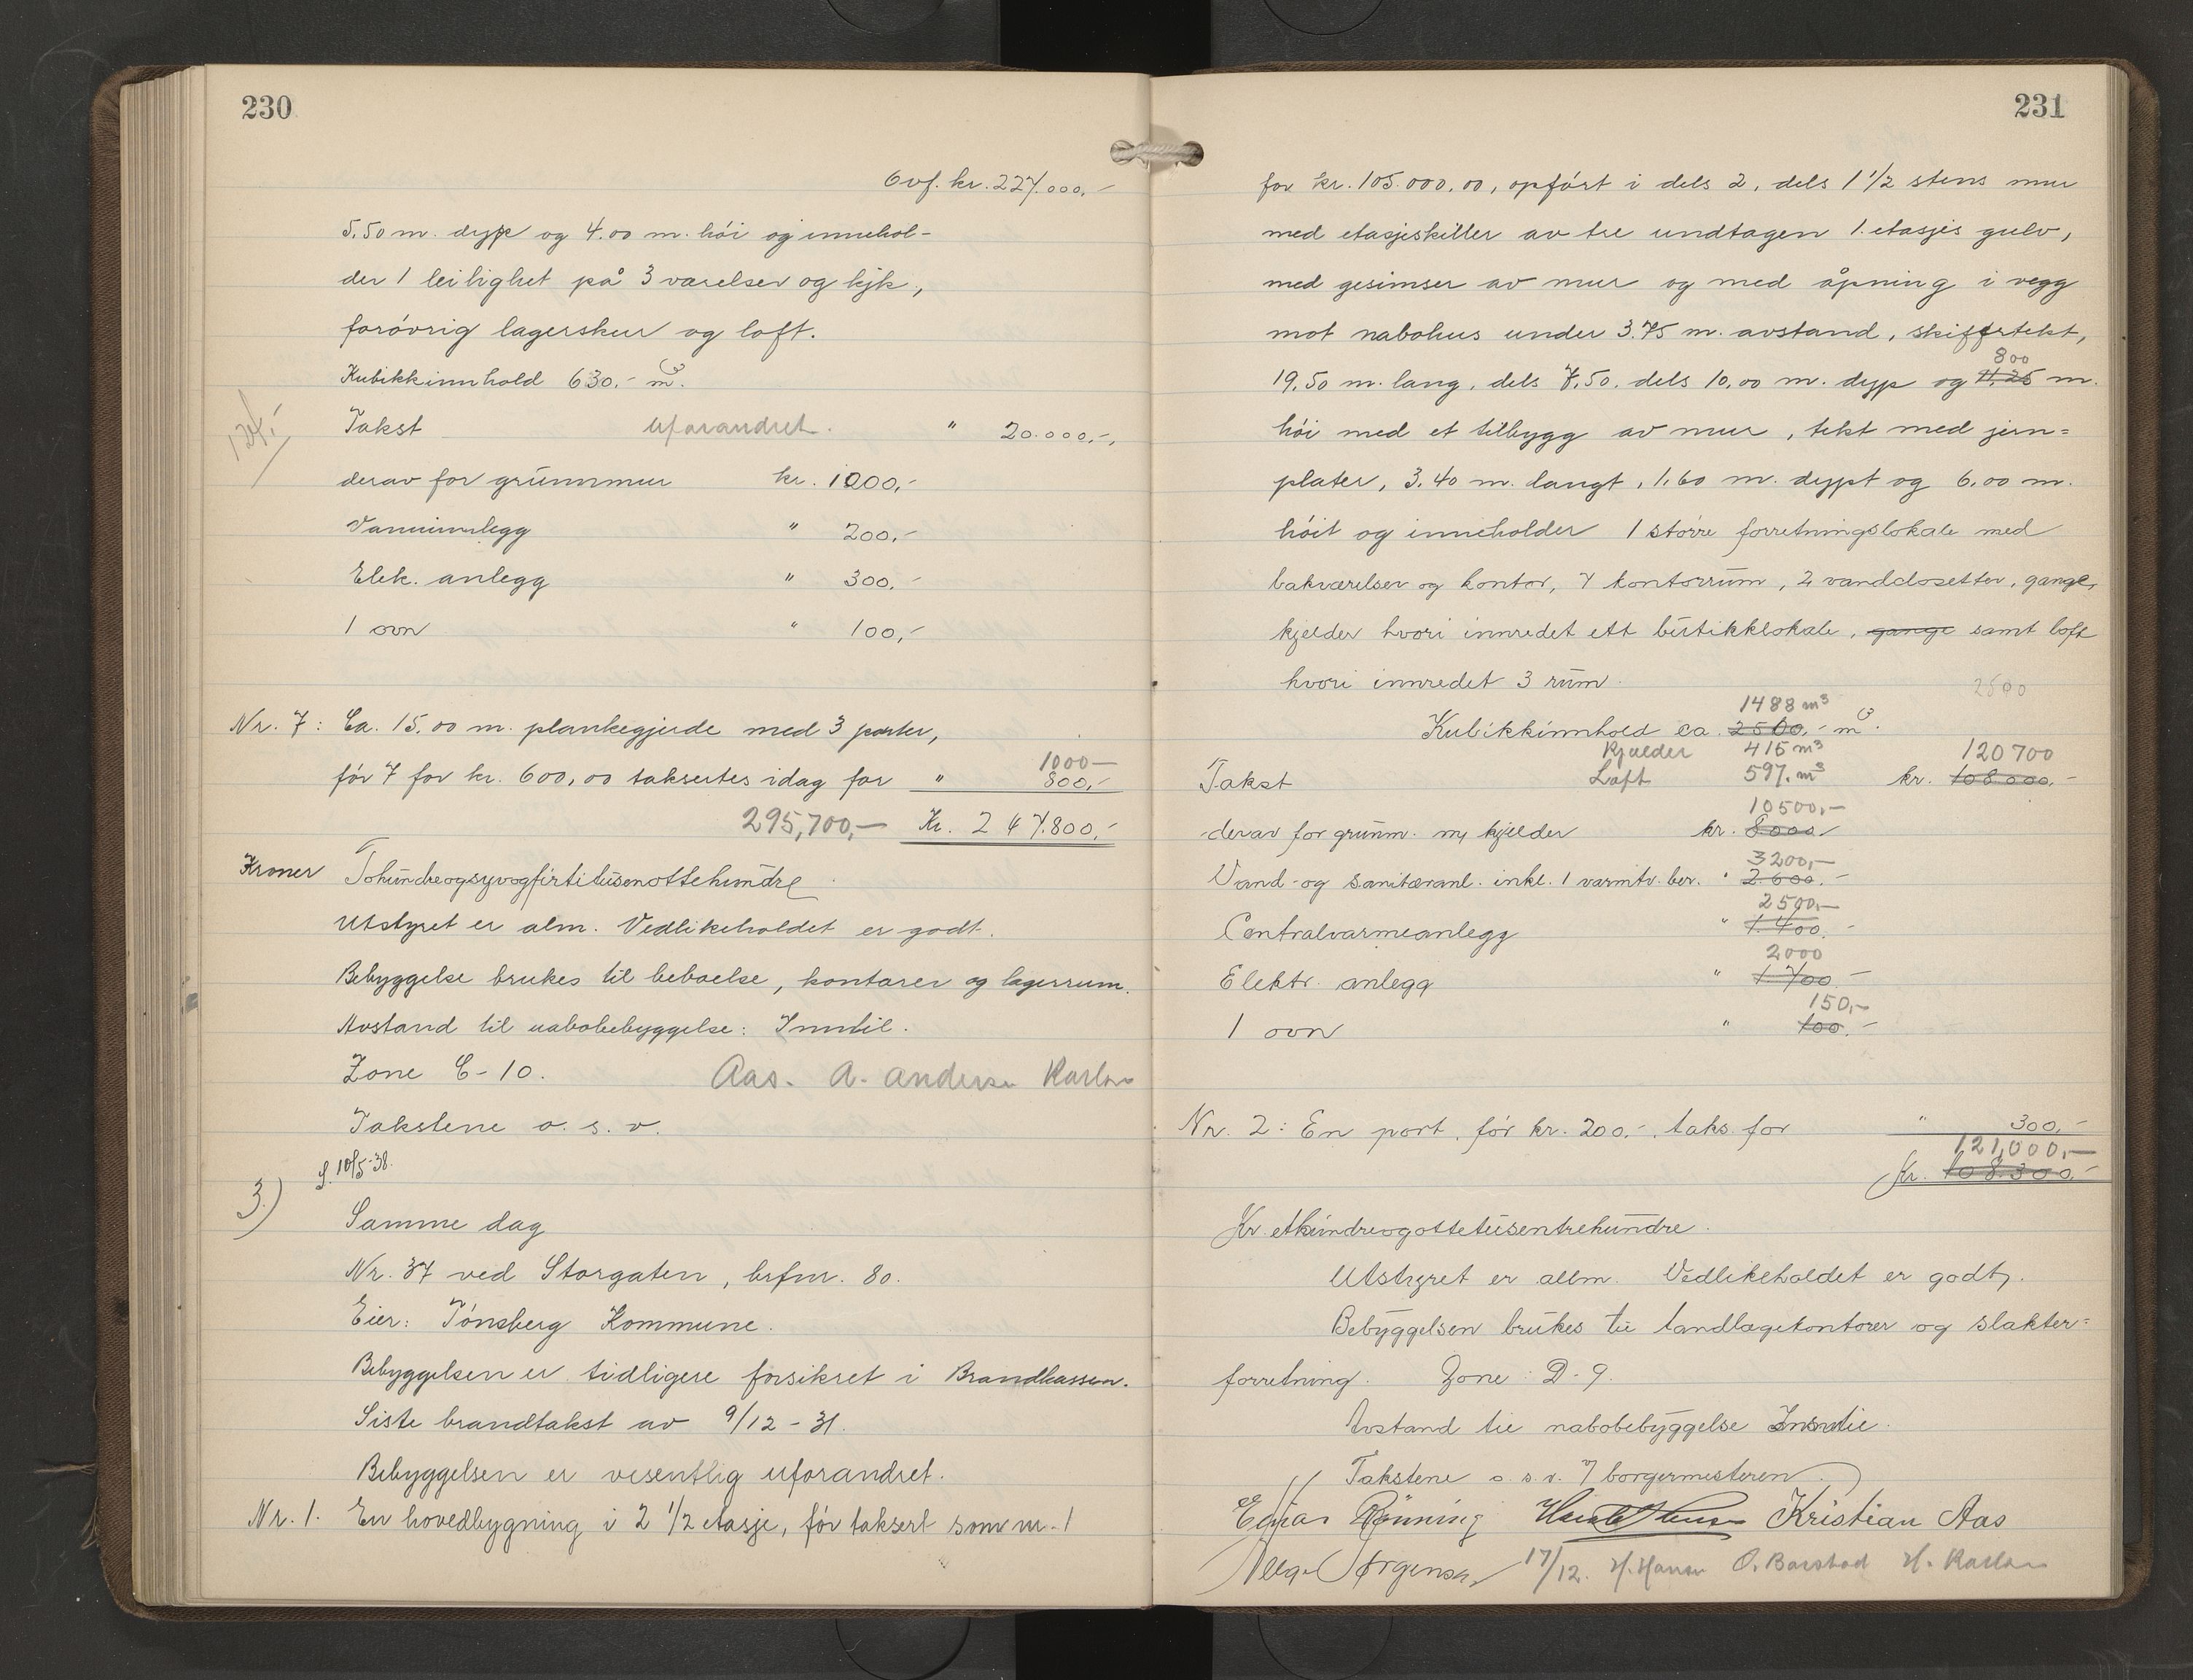 230
Ovf. kr. 227.000,-
5,50 m. dyp og 4.00 m. hói og innehol-
der 1 leilighet på 3 værelser og kjk,
forövrig lagerskur og loft.
Kubikkinnhold 630,- m³.
Takst uforandret. " 20.000,-,
derav for grunnmur kr. 1000,-
Vanninnlegg " 200,-
Elek. anlegg " 300,-
1 ovn " 100,-
Nr. 7: Ca. 15,00 m. plankegjerde med 3 porter,
1000-
för 7 for kr. 600,00 taksertes idag for " 800,-
295,700,- Kr. 247.800,-
Kroner Tohundreogsyvogfirtitusenottehundre
Utstyret er alm. Vedlikeholdet er godt.
Bebyggelse brukes til beboelse, kontorer og lagerrum.
Avstand til nabobebyggelse: Inntil.
Zone C-10. Aas. A. Andersen Karlsen
Takstene o. s. v.
S. 10/5-38.
3)
Samme dag
Nr. 37 ved Storgaten, brfnr. 80.
Eier: Tónsberg Kommune.
Bebyggelsen er tidligere forsikret i Brandkassen.
Siste brandtakst av 9/12-31.
Bebyggelsen er vesentlig uforandret.
Nr. 1. En hovedbygning i 2 1/2 etasje, för taksert som nr. 1
231
for kr. 105.000,00, opfört i dels 2, dels 1 1/2 stens mur
med etasjeskiller av tre undtagen 1. etasjes gulv,
med gesimser av mur og med åpning i vegg
mot nabohus under 3.75 m. avstand, skiffertekt,
800
19,50 m. lang, dels 7,50, dels 10,00 m. dyp og 11,25 m.
hói med et tilbygg av mur, tekt med jern=
plater, 3.40 m. langt, 1,60 m. dypt og 6,00 m.
hóit og inneholder 1 större forretningslokale med
bakværelser og kontor, 7 kontorrum, 2 vandclosetter, gange,
kjelder hvori innredet ett butikklokale, gange samt loft
hvori innredet 3 rum.
2500
1488 m³
Kubikkinnhold ca. 2500,- m³.
Kjelder 415 m³ 120700
Takst Loft 597. m³ kr. 108.000,-
10500,-
derav for grunm. m/ kjelder kr. 8000,-
3200,-
Vand- og sanitæranl. inkl. 1 varmtv. ber. " 2.600,-
2500,-
Centralvarmeanlegg " 1.400,-
2000
Elektr. anlegg " 1.700,-
150,-
1 ovn " 100,-
Nr. 2: En port, för kr. 200,-, taks. for " 300,-
121,000,-
Kr. 108.300,-
Kr. etthundreogottetusentrehundre.
Utstyret er allm. Vedlikeholdet er godt.
Bebyggelsen brukes til tandlægekontorer og slakter=
forretning. Zone: D-9.
Avstand til nabobebyggelse Inntil.
Takstene o. s. v. 7 borgermesteren.
Edgar Rönning Kristian Aas
Jørgensen 17/12. H. Hansen O. Barstad H. Karlsen